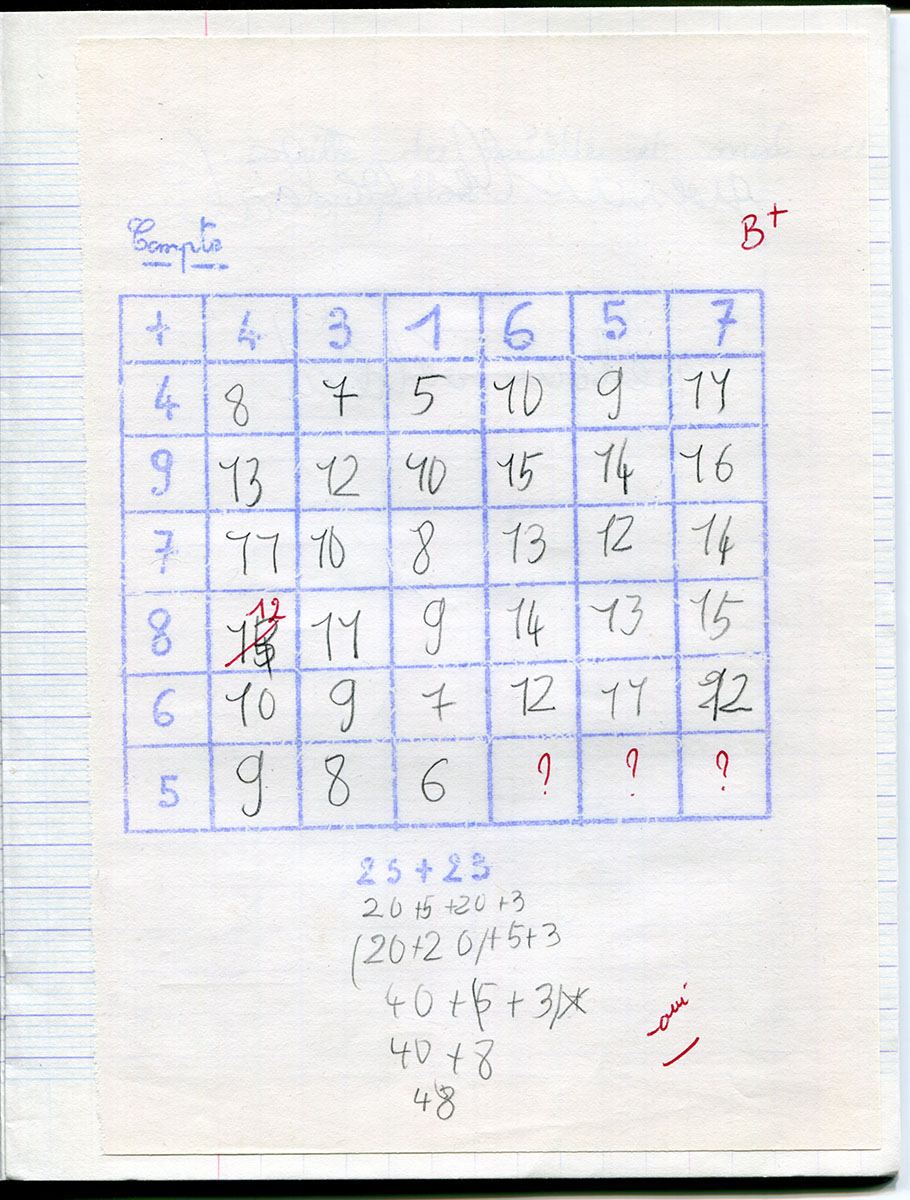 Compte
B+
+ 4 3 1 6 5 7
4 8 7 5 10 9 11
9 13 12 10 15 14 16
7 11 10 8 13 12 14
12
8 11 9 14 13 15
6 10 9 7 12 11 12
5 9 8 6 ? ? ?
25+23
20+5+20+3
(20+20)+5+3
40+(5+3)
oui
40+8
48